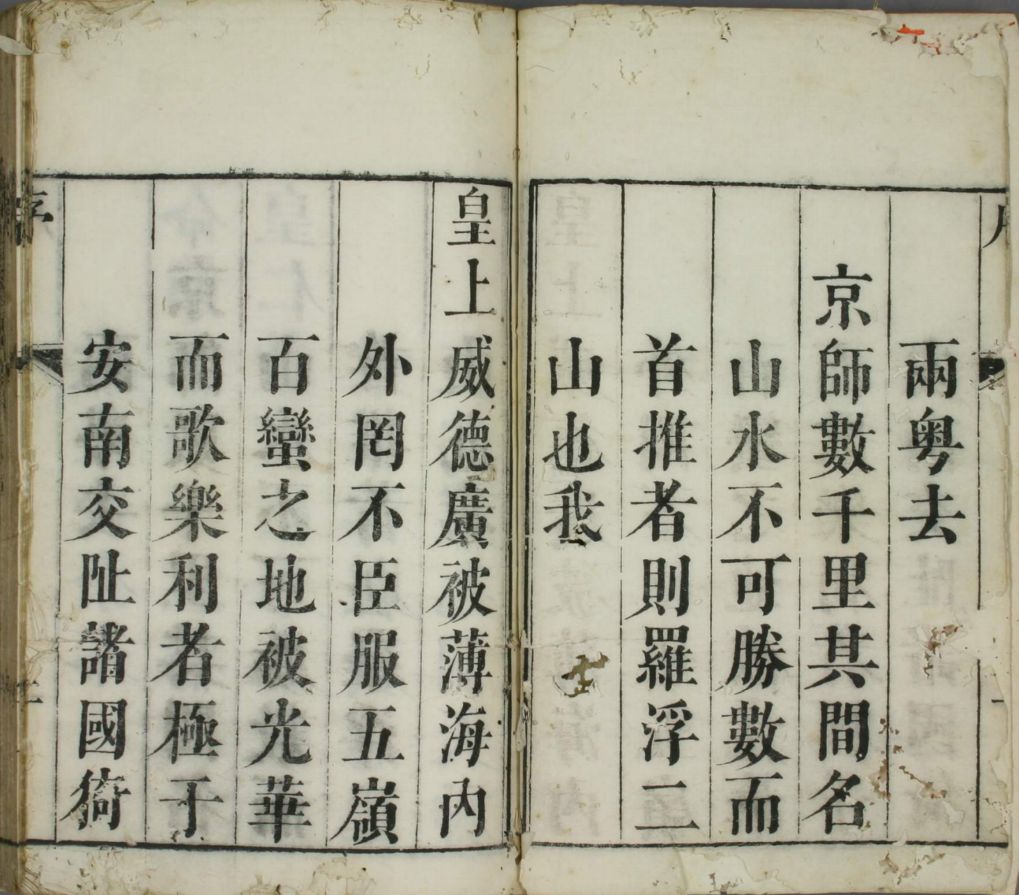 兩粤去
京師數千里其間名
山水不可勝數而
首推者則羅浮二
山也我
皇上威德廣被薄海内
外罔不臣服五嶺
百蠻之地被光華
而歌樂利者極于
安南交阯諸國猗
序